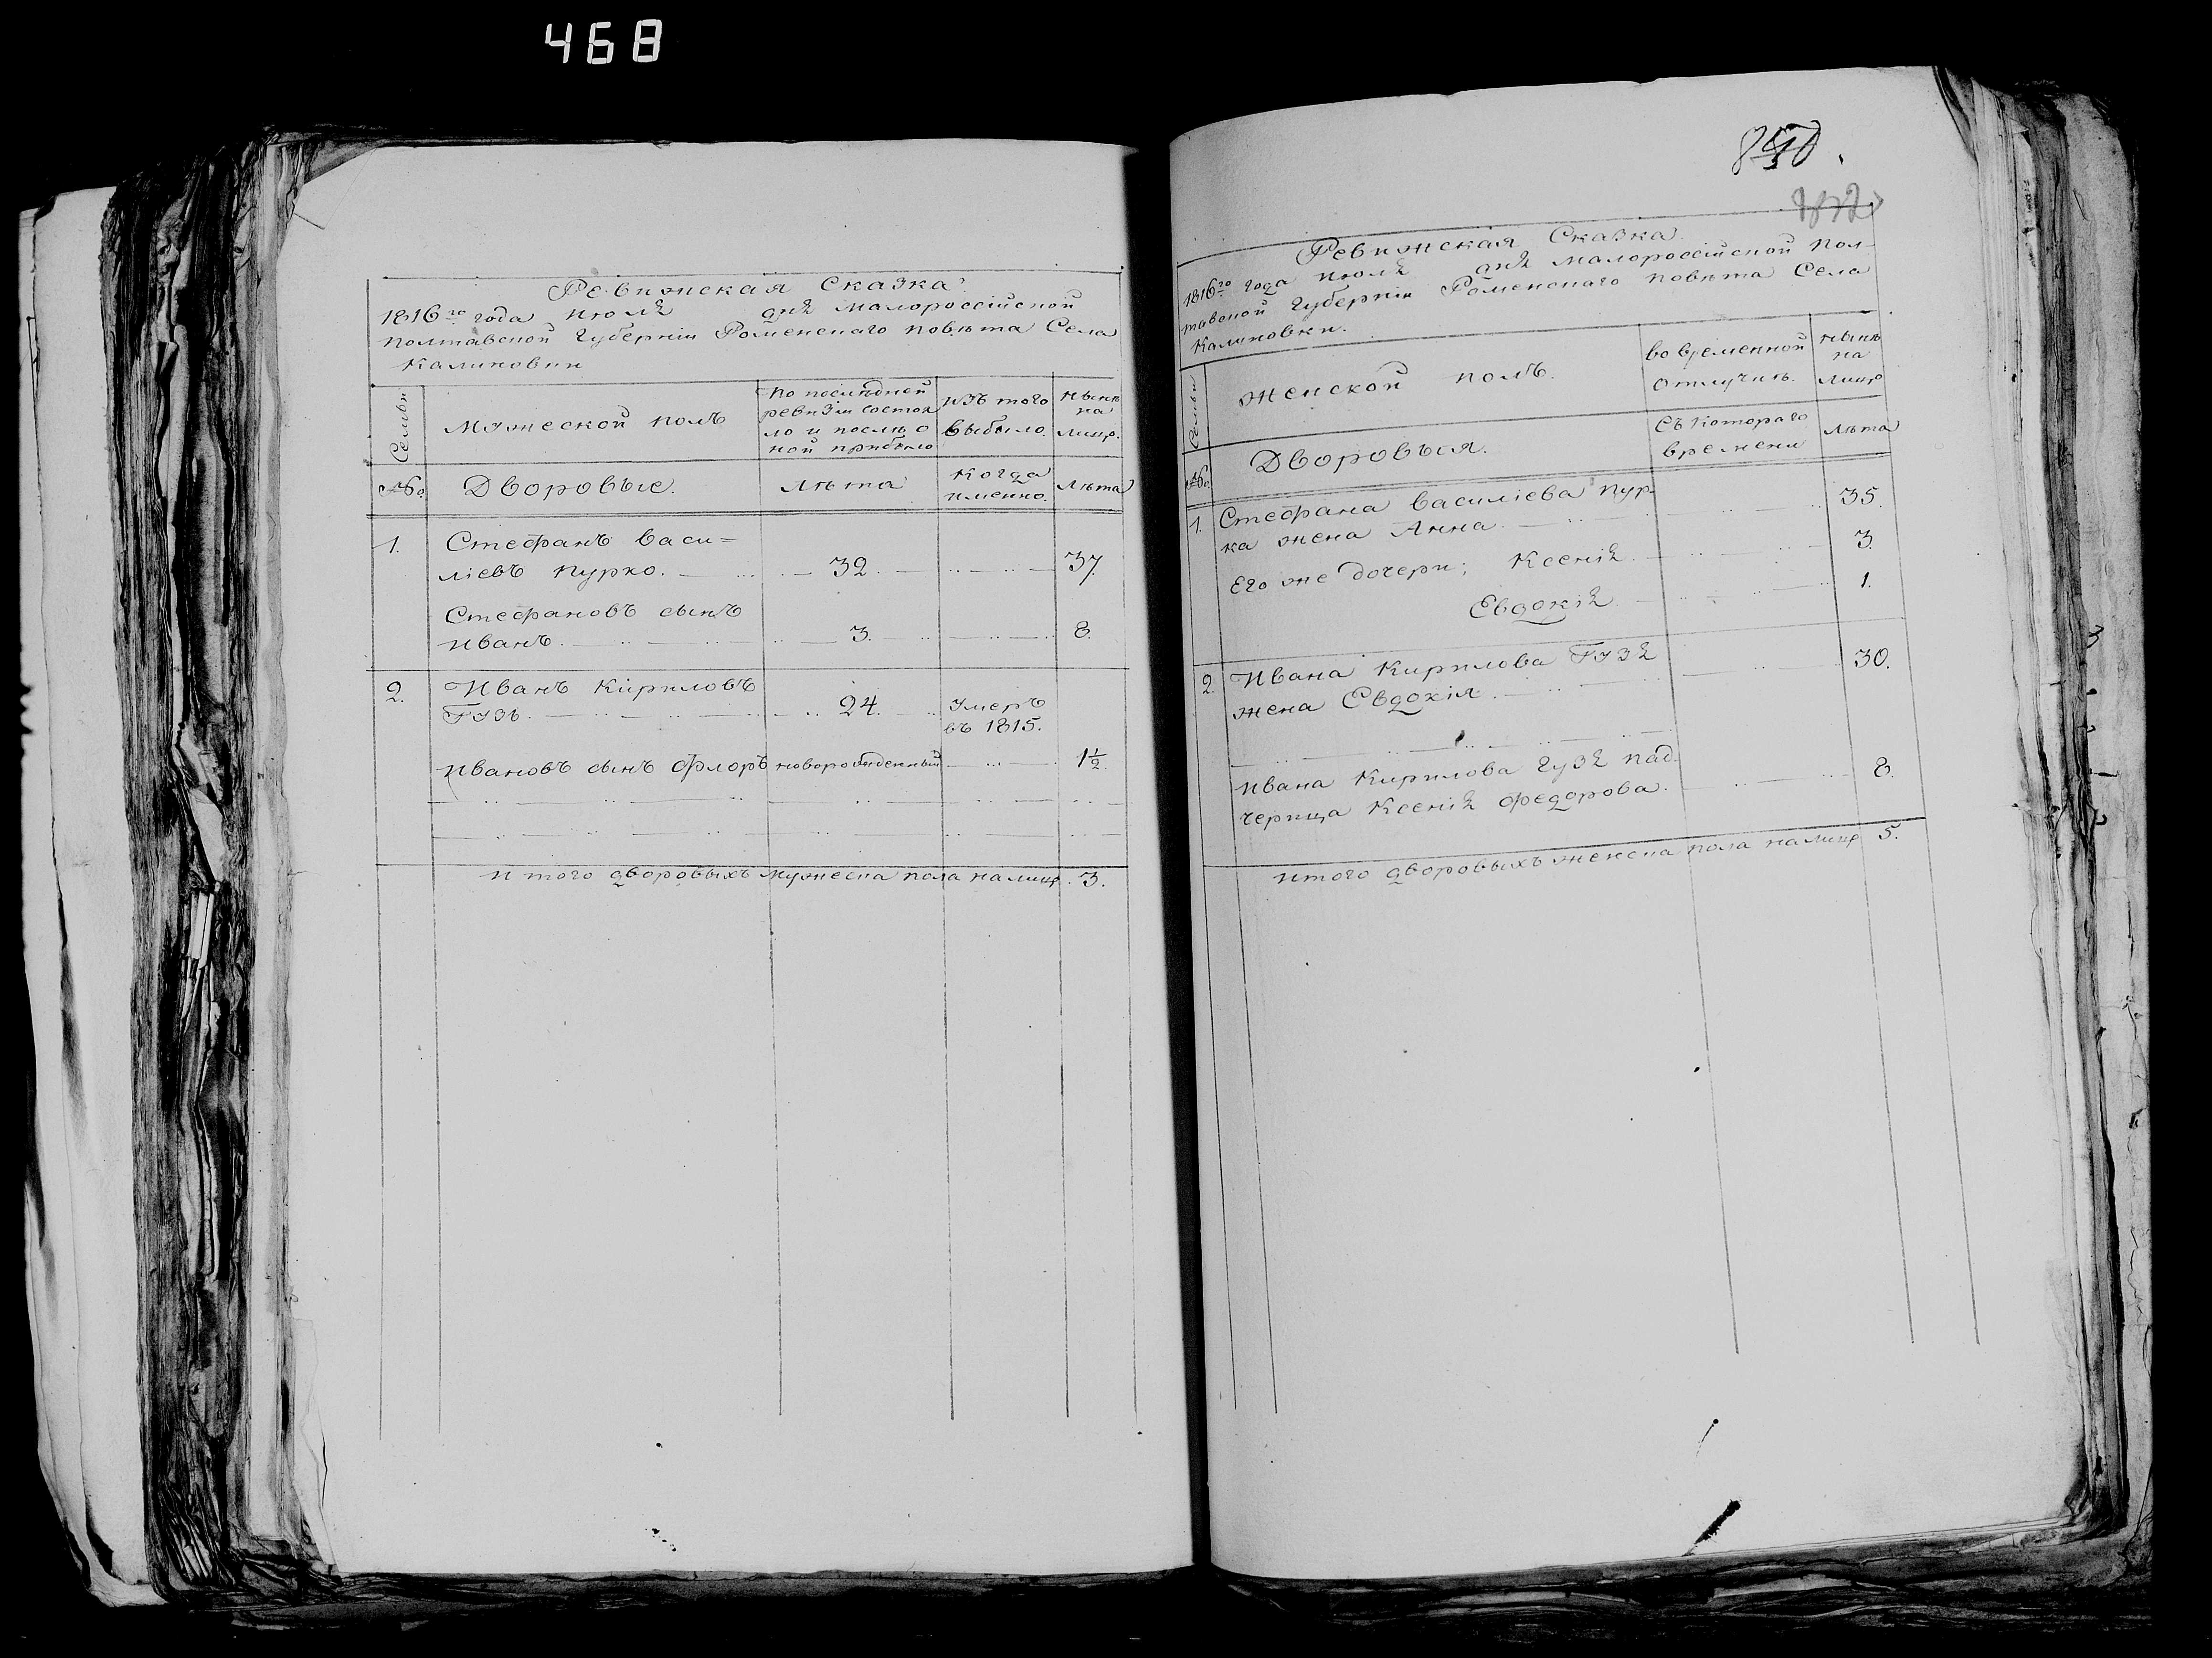 468
Ревижская Сказка
1816го года июля дня Малороссійской
Полтавской Губерніи Роменского повѣта Села
Калиновки
Семьи
Мужеской полъ
по послѣдней
ревизіи состоя
ло и послѣ о
ной прибыло
изъ того
выбыло.
нынѣ
на
лицо.
№.
Дворовые.
лѣта
Когда
именно.
лѣта
1. Стефанъ васи=
ліевъ пурко. 32. 37.
Стефановъ сынъ
иванъ. 3. 8.
2. Иванъ Кириловъ
Гузь. 24. Умеръ
въ 1815.
ивановъ сынъ Флоръ новорожденный 1½.
итого дворовыхъ мужеска пола налицо. 3.
850.
Ревижская Сказка
1816го года июля дня малороссійской Пол-
тавской Губерніи Роменского повѣта Села
Калиновки.
Семьи
женской полъ.
во временной
отлучкѣ.
нынѣ
на
лицо
№.
Дворовыя.
Съ котораго
времени
лѣта
1. Стефана василіева пур-
ка жена Анна. 35.
Его же дочери; Ксенія. 3.
Евдокія 1.
2. Ивана Кирилова Гузя 30.
жена Евдокія.
ивана Кирилова гузя пад-
черица Ксенія федорова. 8.
итого дворовыхъ женска пола налицо 5.